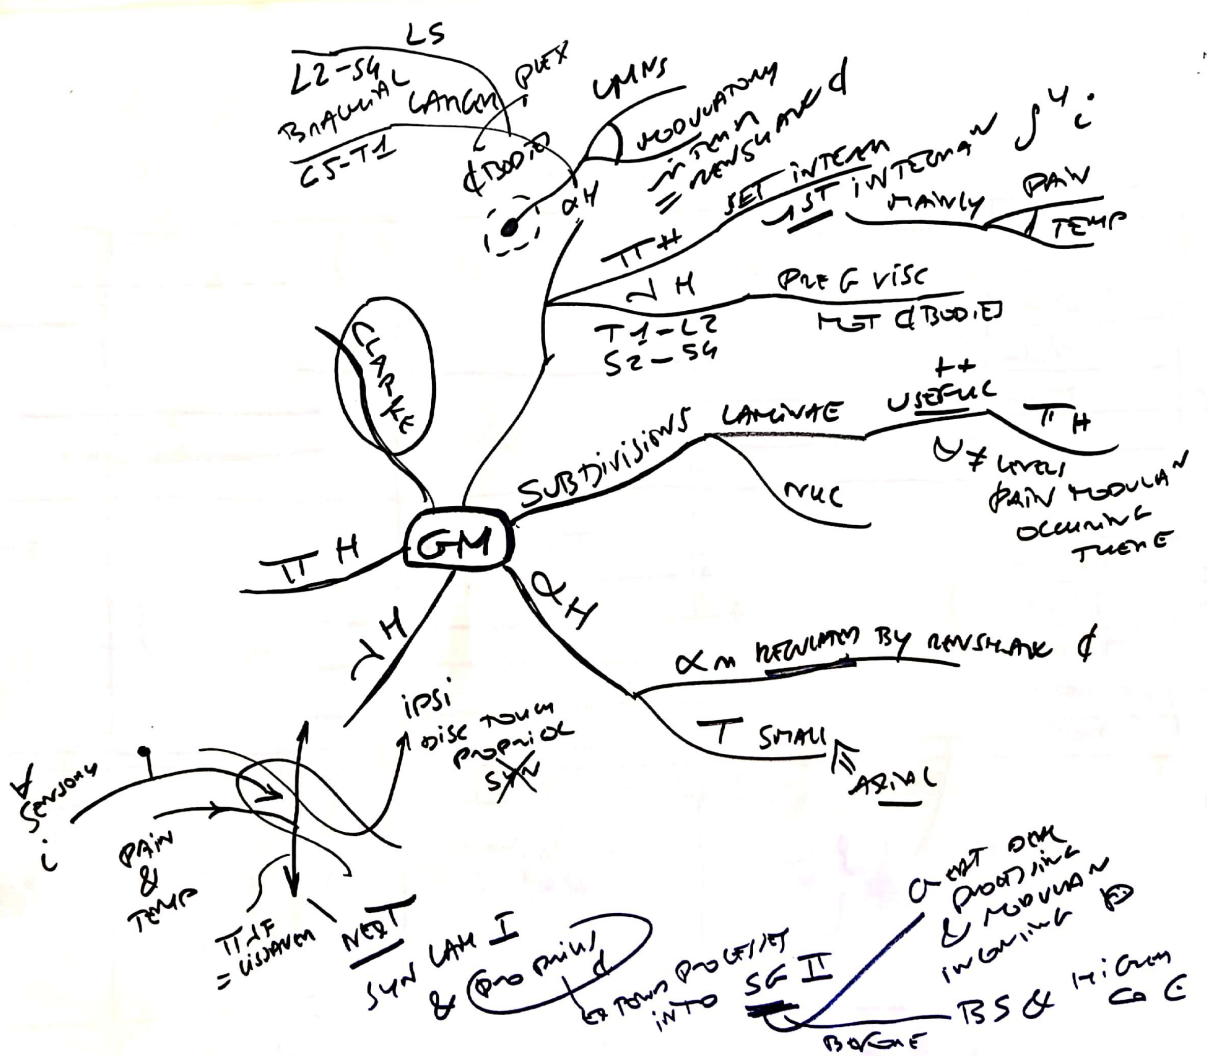 LS
L2-S4
BRACHIAL
C5-T1
PLEX
LMNS
MODULATORY
= RENSHAW ¢
¢ BODIES
αH
πH
1ST INTERNAN
MAINLY
PAIN
TEMP
λH
T1-L2
S2-S4
PRE G VISC
MOT ¢ BODIES
CLARKE
SUBDIVISIONS
LAMINAE
++
USEFUL
πH
∀ ≠ LEVELS
PAIN MODULAN
OCCURING
THERE
NUC
GM
πH
αH
λH
αm REGULATED BY RENSHAW ¢
T SMALL
AXIAL
IPSI
DISC TOUCH
PROPRIOC
SYN
∀
SENSORY
i
PAIN
&
TEMP
= LISSAUER
NEXT
SYN LAM I
& PROPRIUS
¢
INTO SG II
PROCESSING
& MODULAN
INCOMING
BEFORE
BS & HIGHER